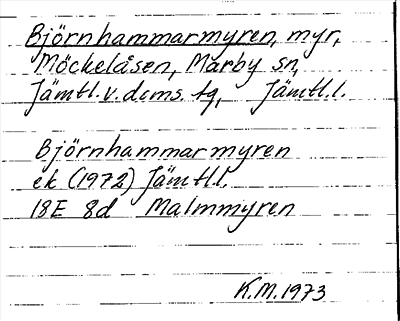 Björnhammarmyren, myr,
Möckelåsen, Marby sn,
Jämtl. v. doms. tg, Jämtl. l.
Björnhammarmyren
ek (1972) Jämtl. l.
18E 8d Malmmyren
K.M. 1973